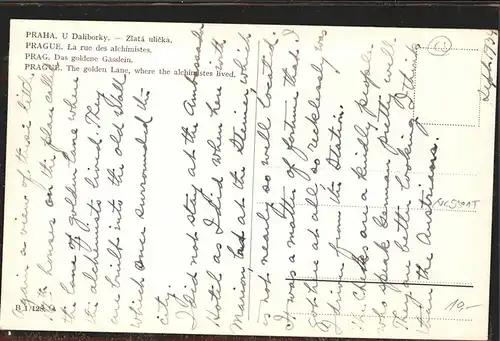 PRAHA. U Daliborky. — Zlatá ulička.
PRAGUE. La rue des alchimistes.
PRAG. Das goldene Gässlein.
PRAGUE. The golden Lane, where the alchimistes lived.
again a view of these little
houses on the place called
the lane of golden lane where
the alchymists lived. They
are built into the old Wall
which once surrounded the
city.
I did not stay at the Ambassador
Hotel as I did when here with
Marion but at the Steiner which
is not nearly so well located.
I was a matter of fortune that I
got here at all so recklessly was
I driven from the Station.
The Checks are a kindly people
who speak German pretty well.
They are better looking I think
than the Austrians.
Sept. 1924
B 1/128.
19.-